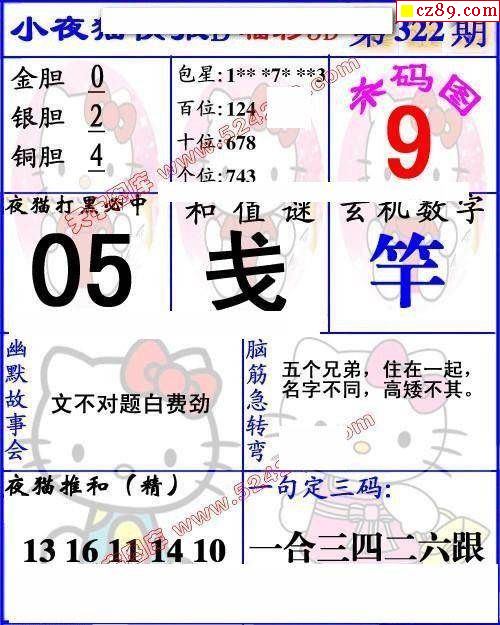 cz89.com
小夜猫快报D 福彩3D 第322期
金胆 0
银胆 2
铜胆 4
包星:1** *7* **3
百位:124
十位:678
个位:743
杀码图
9
夜猫打黑必中
05
和值谜
戋
玄机数字
竿
幽默故事会
文不对题白费劲
脑筋急转弯
五个兄弟，住在一起，
名字不同，高矮不其。
夜猫推和（精）
13 16 11 14 10
一句定三码:
一合三四二六跟